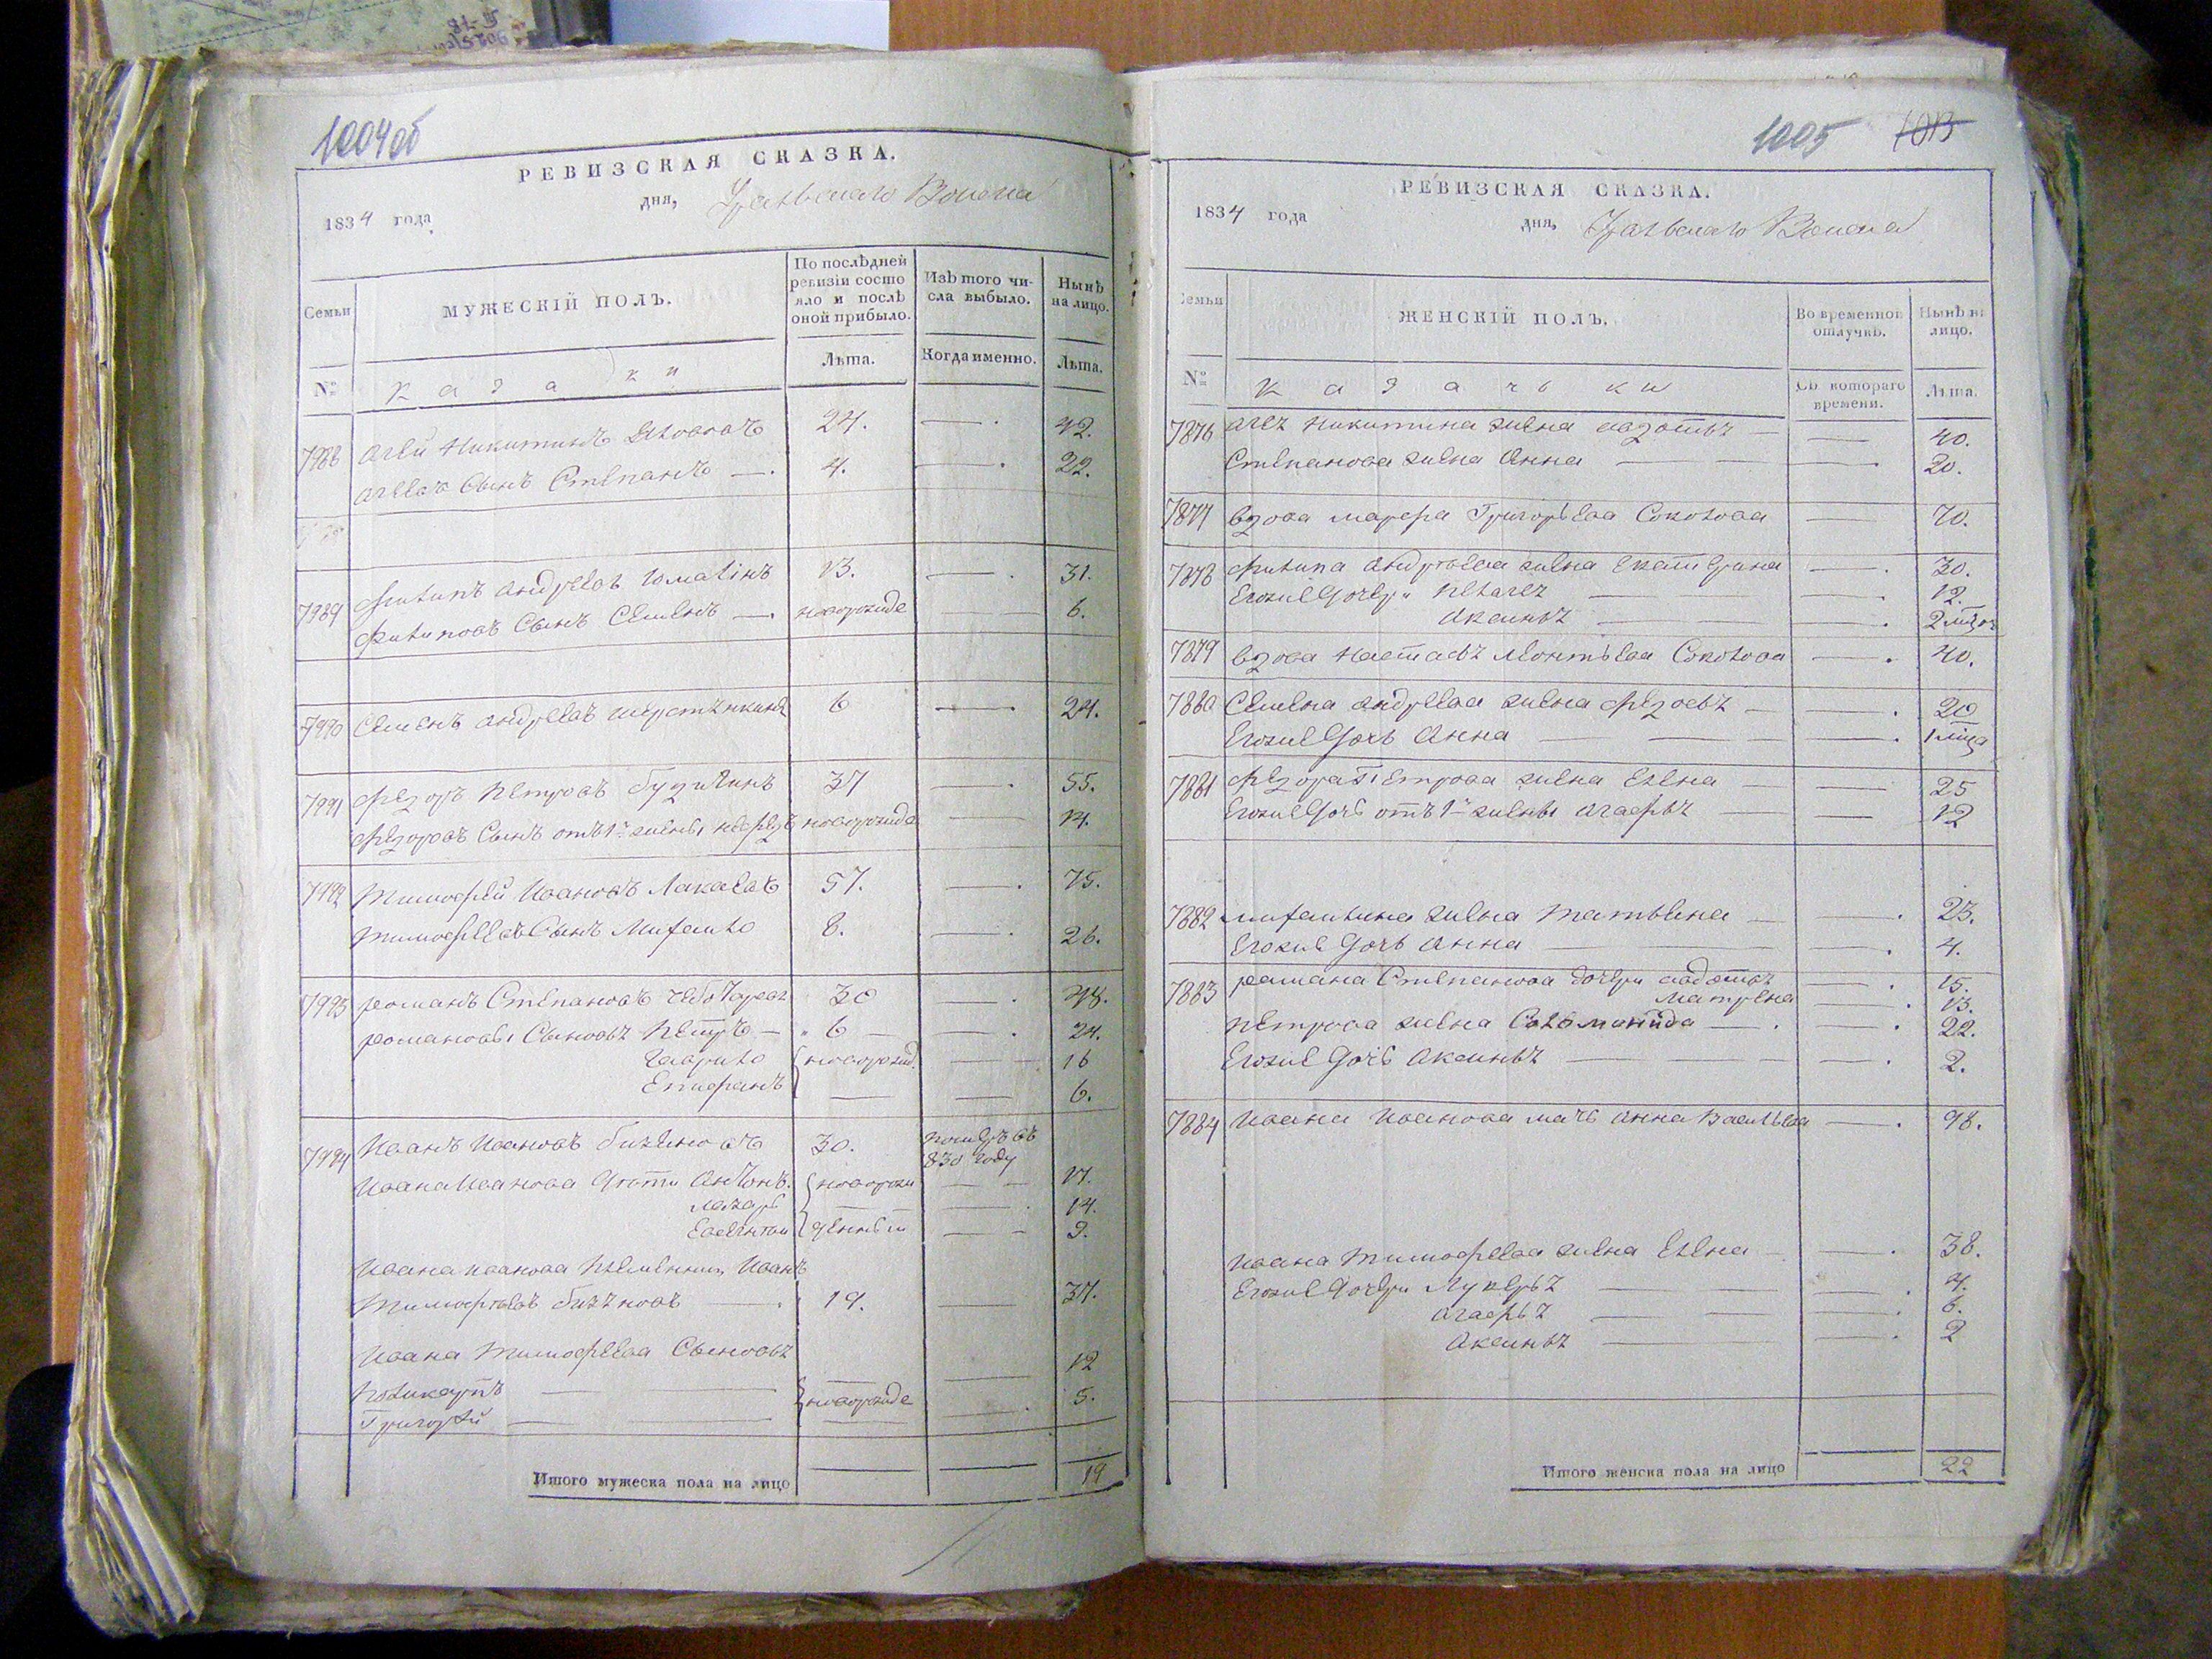 1004об
РЕВИЗСКАЯ СКАЗКА.
1834 года
дня, Уральскаго Войска
Семьи
МУЖЕСКІЙ ПОЛЪ.
По послѣдней ревизіи состояло и послѣ оной прибыло.
Изъ того числа выбыло.
Нынѣ на лицо.
№
казаки
Лѣта.
Когда именно.
Лѣта.
Агей Никитинъ 24. — 42.
Агеевъ Сынъ Степанъ — 4. — 22.
7989 Филипъ Андреевъ 13. — 31.
Филиповъ Сынъ Семенъ — новорожде — 6.
7990 Семенъ Андреевъ 6 — 24.
7991 Федоръ Петровъ 37 — 55.
Федоровъ Сынъ отъ 1й жены новорожде — 14.
7992 Тимофей Ивановъ Лакаевъ 57. — 75.
Тимофеевъ Сынъ Михайло 8. — 26.
7993 Романъ Степановъ 30 — 48.
Романовы Сыновья Петръ — 6 — 24.
Гаврило новорожд. — 16
Епифанъ — — 6.
7994 Иванъ Ивановъ 30. померъ въ
830 году
Ивана Иванова Дѣти Антонъ новорож — — 17.
Лазарь — — 14.
денный — — 9.
Ивана Иванова племянникъ Иванъ
Тимофеевъ — 19. — 37.
Ивана Тимофеева Сыновья
Поликарпъ — — — 12
Григорій — новорожде — 5.
Итого мужеска пола на лицо — — 19
1005 1013
РЕВИЗСКАЯ СКАЗКА.
1834 года
дня, Уральскаго Войска
Семьи
ЖЕНСКІЙ ПОЛЪ.
Во временной отлучкѣ.
Нынѣ на лицо.
№
казачьки
Съ котораго времени.
Лѣта.
7876 Агея Никитина жена Авдотья — — 40.
Степанова жена Анна — — 20.
7877 Вдова Марфа Григорьева Соколова — 70.
7878 Филипа Андреева жена Екатерина — 30.
Его же дочери Пелагея — — 12.
Аксинья — — 2
7879 Вдова Настасья Леонтьева Соколова — 40.
7880 Семена Андреева жена Федосья — — 20
Его же дочь Анна — — 1
7881 Федора Петрова жена Елена — — 25
Его же дочь отъ 1й жены Агафья — — 12
7882 Михайлина жена Татьяна — — 23.
Его же дочь Анна — — 4.
7883 Романа Степанова дочери Авдотья — 15.
Матрена — 13.
Петрова жена Соломонида — — 22.
Его же дочь Аксинья — — 2.
7884 Ивана Иванова мать Анна Васильева — 98.
Ивана Тимофеева жена Елена — — 38.
Его же дочери Лукерья — — 4.
Агафья — — 6.
Аксинья — — 2
Итого женска пола на лицо — 22